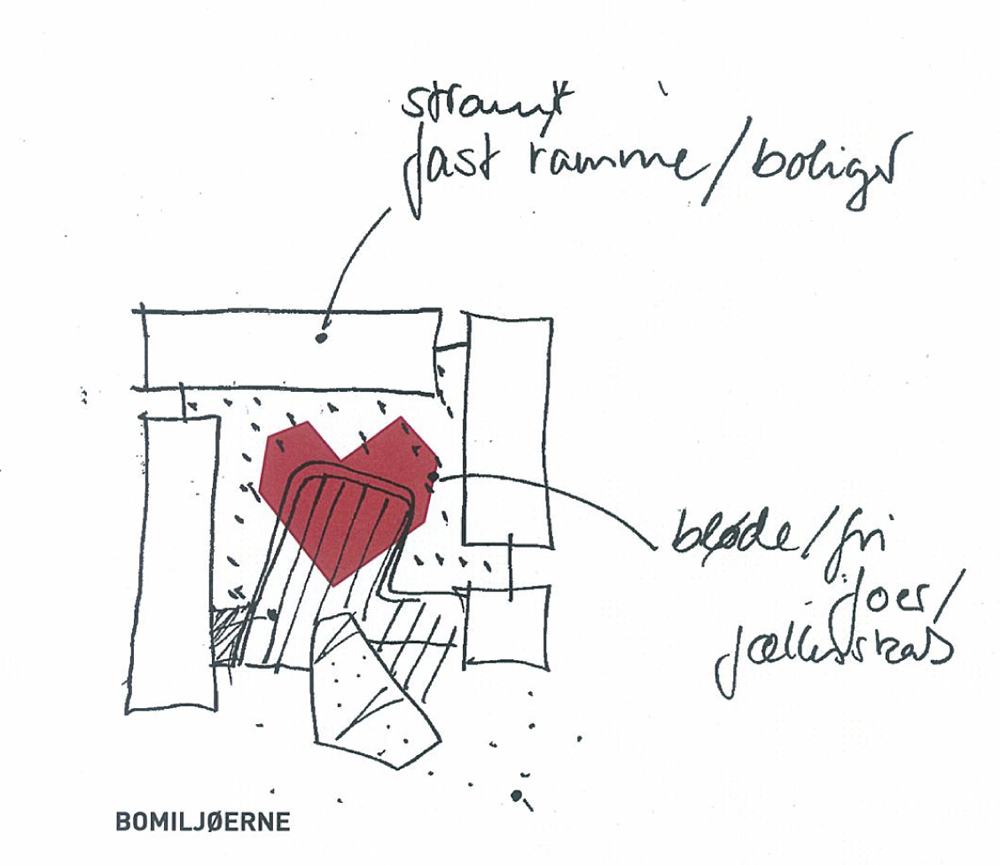 stramt
fast ramme/boliger
bløde/fri
fællesskab
BOMILJØERNE